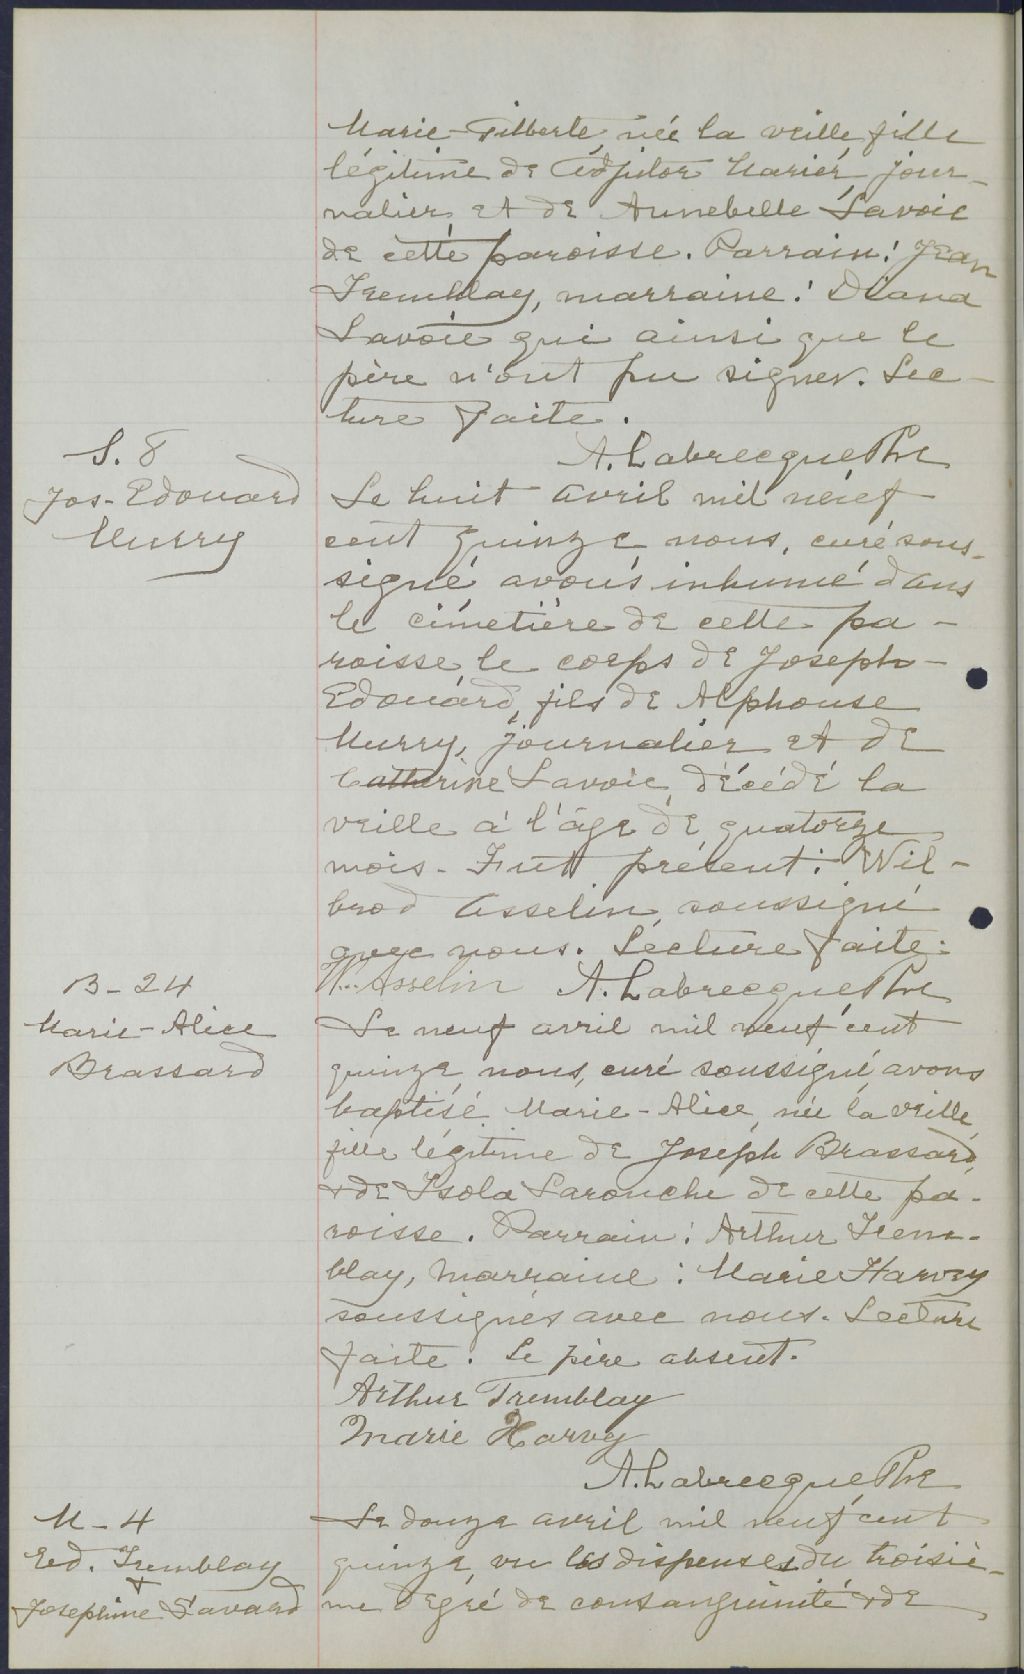 Marie-Gilberte, née la veille, fille
légitime de Adjutor Marier, jour-
nalier, et de Annebelle Savoie
de cette paroisse. Parrain: Jean
Tremblay, marraine: Diana
Savoie qui ainsi que le
père n'ont pu signer. Lec-
ture faite.
A. Labrecque Ptre
S. 8
Jos-Edouard
Murry
Le huit avril mil neuf
cent quinze nous, curé sous-
signé avons inhumé dans
le cimetière de cette pa-
roisse le corps de Joseph-
Edouard, fils de Alphonse
Murry, journalier et de
Catherine Savoie, décédé la
veille à l'âge de quatorze
mois. Fut présent: Wil-
brod Asselin, soussigné
avec nous. Lecture faite.
W. Asselin A. Labrecque Ptre
B-24
Marie-Alice
Brassard
Le neuf avril mil neuf cent
quinze nous, curé soussigné, avons
baptisé Marie-Alice, née la veille,
fille légitime de Joseph Brassard,
& de Isola Larouche de cette pa-
roisse. Parrain: Arthur Trem-
blay, marraine: Marie Harvey
soussignés avec nous. Lecture
faite. Le père absent.
Arthur Tremblay
Marie Harvey
A. Labrecque Ptre
M-4
Ed. Tremblay
+
Josephine Savard
Le douze avril mil neuf cent
quinze, vu les dispenses du troisiè-
me degré de consanguinité & de